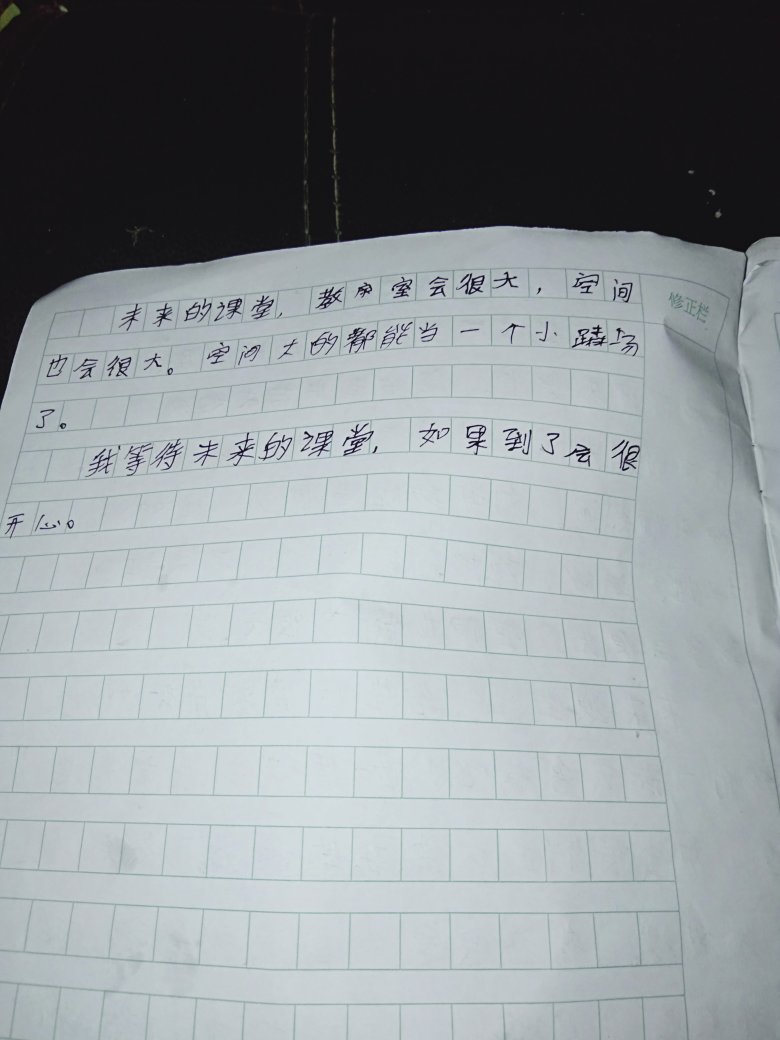 未来的课堂，教室会很大，空间
修正栏
也会很大。空间大的都能当一个小 场
了。
我等待未来的课堂，如果到了会很
开心。